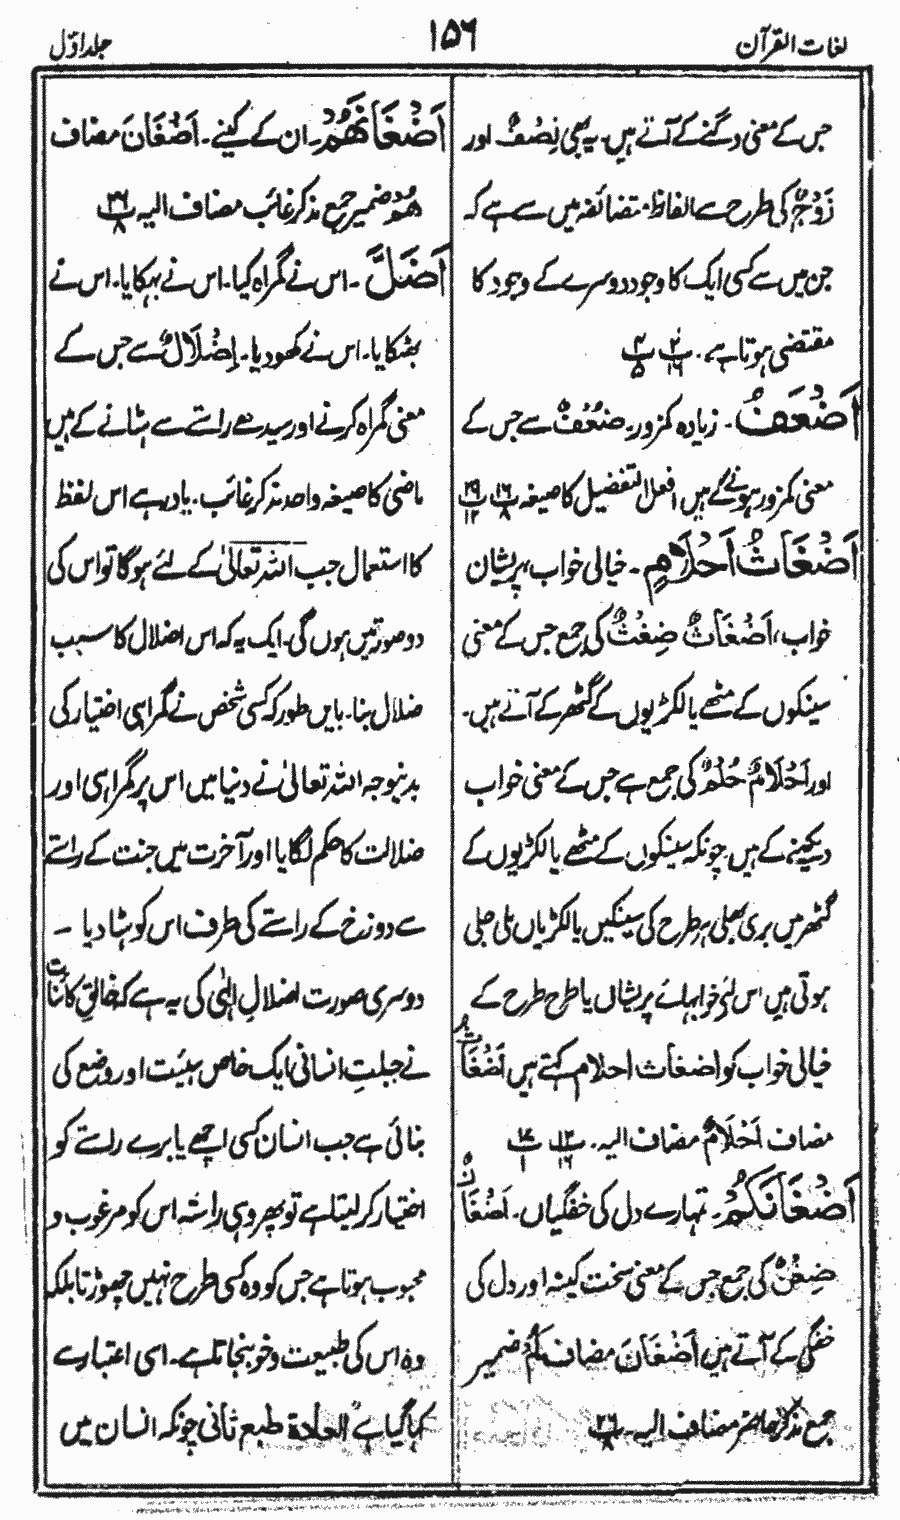 لغات القرآن
۱۵۶
جلد اوّل
جس کے معنی دگنے کے آتے ہیں۔ یہ بھی نِصْفٌ اور
زَوْجٌ کی طرح سے الفاظ متضائفہ میں سے ہے کہ
جن میں سے کسی ایک کا وجود دوسرے کے وجود کا
مقتضی ہوتا ہے۔
اَضْعَفُ۔ زیادہ کمزور۔ ضُعْفٌ سے جس کے
معنی کمزور ہونے کے ہیں افعل التفضیل کا صیغہ
اَضْغَاثُ اَحْلَامٍ۔ خیالی خواب، پریشان
خواب، اَضْغَاثٌ ضِغْثٌ کی جمع جس کے معنی
سینکوں کے مٹھے یا لکڑیوں کے گٹھر کے آتے ہیں۔
اور اَحْلَامٌ حُلْمٌ کی جمع ہے جس کے معنی خواب
دیکھنے کے ہیں چونکہ سینکوں کے مٹھے یا لکڑیوں کے
گٹھر میں بری بھلی ہر طرح کی سینکیں یا لکڑیاں ملی جلی
ہوتی ہیں اس لئے خوابہائے پریشاں یا طرح طرح کے
خیالی خواب کو اضغاث احلام کہتے ہیں اَضْغَاثُ
مضاف اَحْلَامٌ مضاف الیہ۔
اَضْغَانَكُمْ۔ تمہارے دل کی خفگیاں۔ اَضْغَانٌ
ضِغْنٌ کی جمع جس کے معنی سخت کینہ اور دل کی
خفگی کے آتے ہیں اَضْغَانَ مضاف كُمْ ضمیر
جمع مذکر حاضر مضاف الیہ۔
اَضْغَانَهُمْ۔ ان کے کینے۔ اَضْغَانَ مضاف
هُمْ ضمیر جمع مذکر غائب مضاف الیہ
اَضَلَّ۔ اس نے گمراہ کیا۔ اس نے بہکایا۔ اس نے
بھٹکایا۔ اس نے کھو دیا۔ اِضْلَالٌ سے جس کے
معنی گمراہ کرنے اور سیدھے راستے سے ہٹانے کے ہیں
ماضی کا صیغہ واحد مذکر غائب۔ یاد رہے اس لفظ
کا استعمال جب اللہ تعالیٰ کے لئے ہوگا تو اس کی
دو صورتیں ہوں گی۔ ایک یہ کہ اس اضلال کا سبب
ضلال بنا۔ بایں طور کہ کسی شخص نے گمراہی اختیار کی
بدنبوجہ اللہ تعالیٰ نے دنیا میں اس پر گمراہی اور
ضلالت کا حکم لگایا اور آخرت میں جنت کے راستے
سے دوزخ کے راستے کی طرف اس کو ہٹا دیا ۔
دوسری صورت اضلالِ الٰہی کی یہ ہے کہ خالقِ کائنات
نے جبلتِ انسانی ایک خاص ہیئت اور وضع کی
بنائی ہے جب انسان کسی اچھے یا برے راستے کو
اختیار کر لیتا ہے تو پھر وہی راستہ اس کو مرغوب و
محبوب ہوتا ہے جس کو وہ کسی طرح نہیں چھوڑتا بلکہ
وہ اس کی طبیعت و خو بنجاتا ہے۔ اسی اعتبار سے
کہا گیا ہے العادة طبع ثانی چونکہ انسان میں